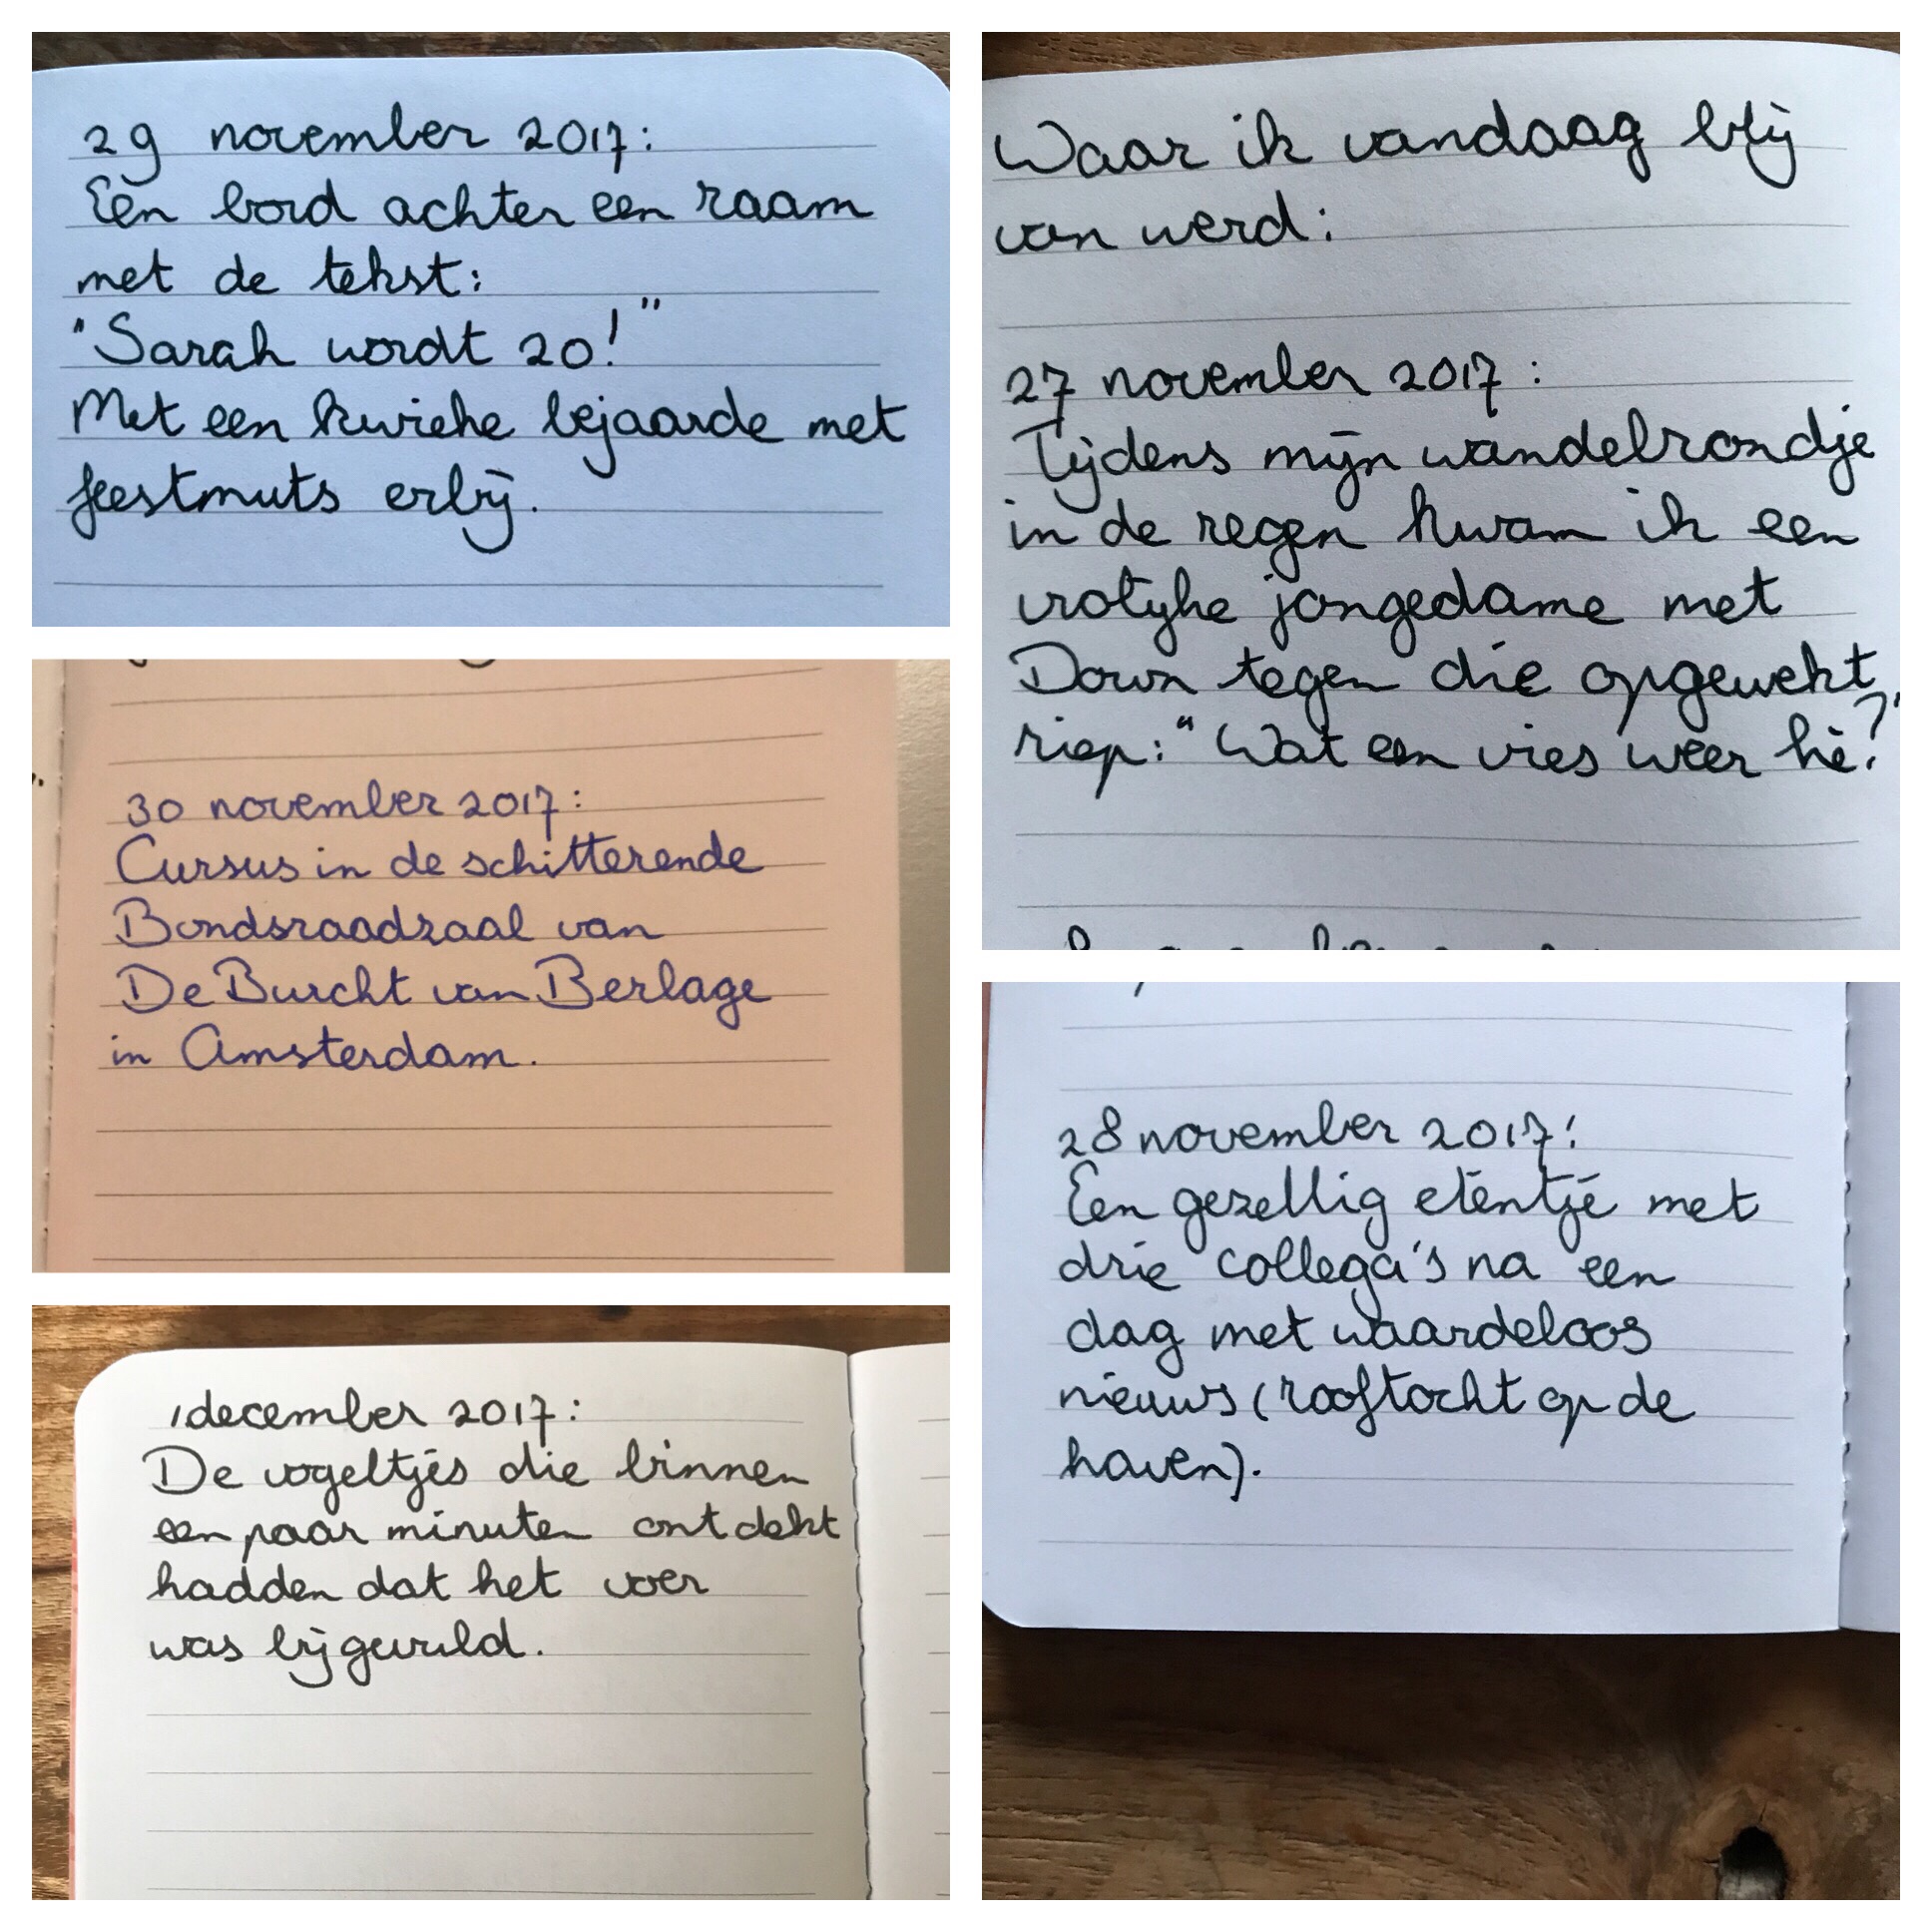 29 november 2017:
Een bord achter een raam
met de tekst:
"Sarah wordt 20!"
Met een kwieke bejaarde met
feestmuts erbij.
30 november 2017:
Cursus in de schitterende
Bondsraadzaal van
De Burcht van Berlage
in Amsterdam.
1 december 2017:
De vogeltjes die binnen
een paar minuten ontdekt
hadden dat het voer
was bijgevuld.
Waar ik vandaag blij
van werd:
27 november 2017:
Tijdens mijn wandelrondje
in de regen kwam ik een
vrolijke jongedame met
Down tegen die opgewekt
riep: "Wat een vies weer hè?"
28 november 2017:
Een gezellig etentje met
drie collega's na een
dag met waardeloos
nieuws (rooftocht op de
haven).